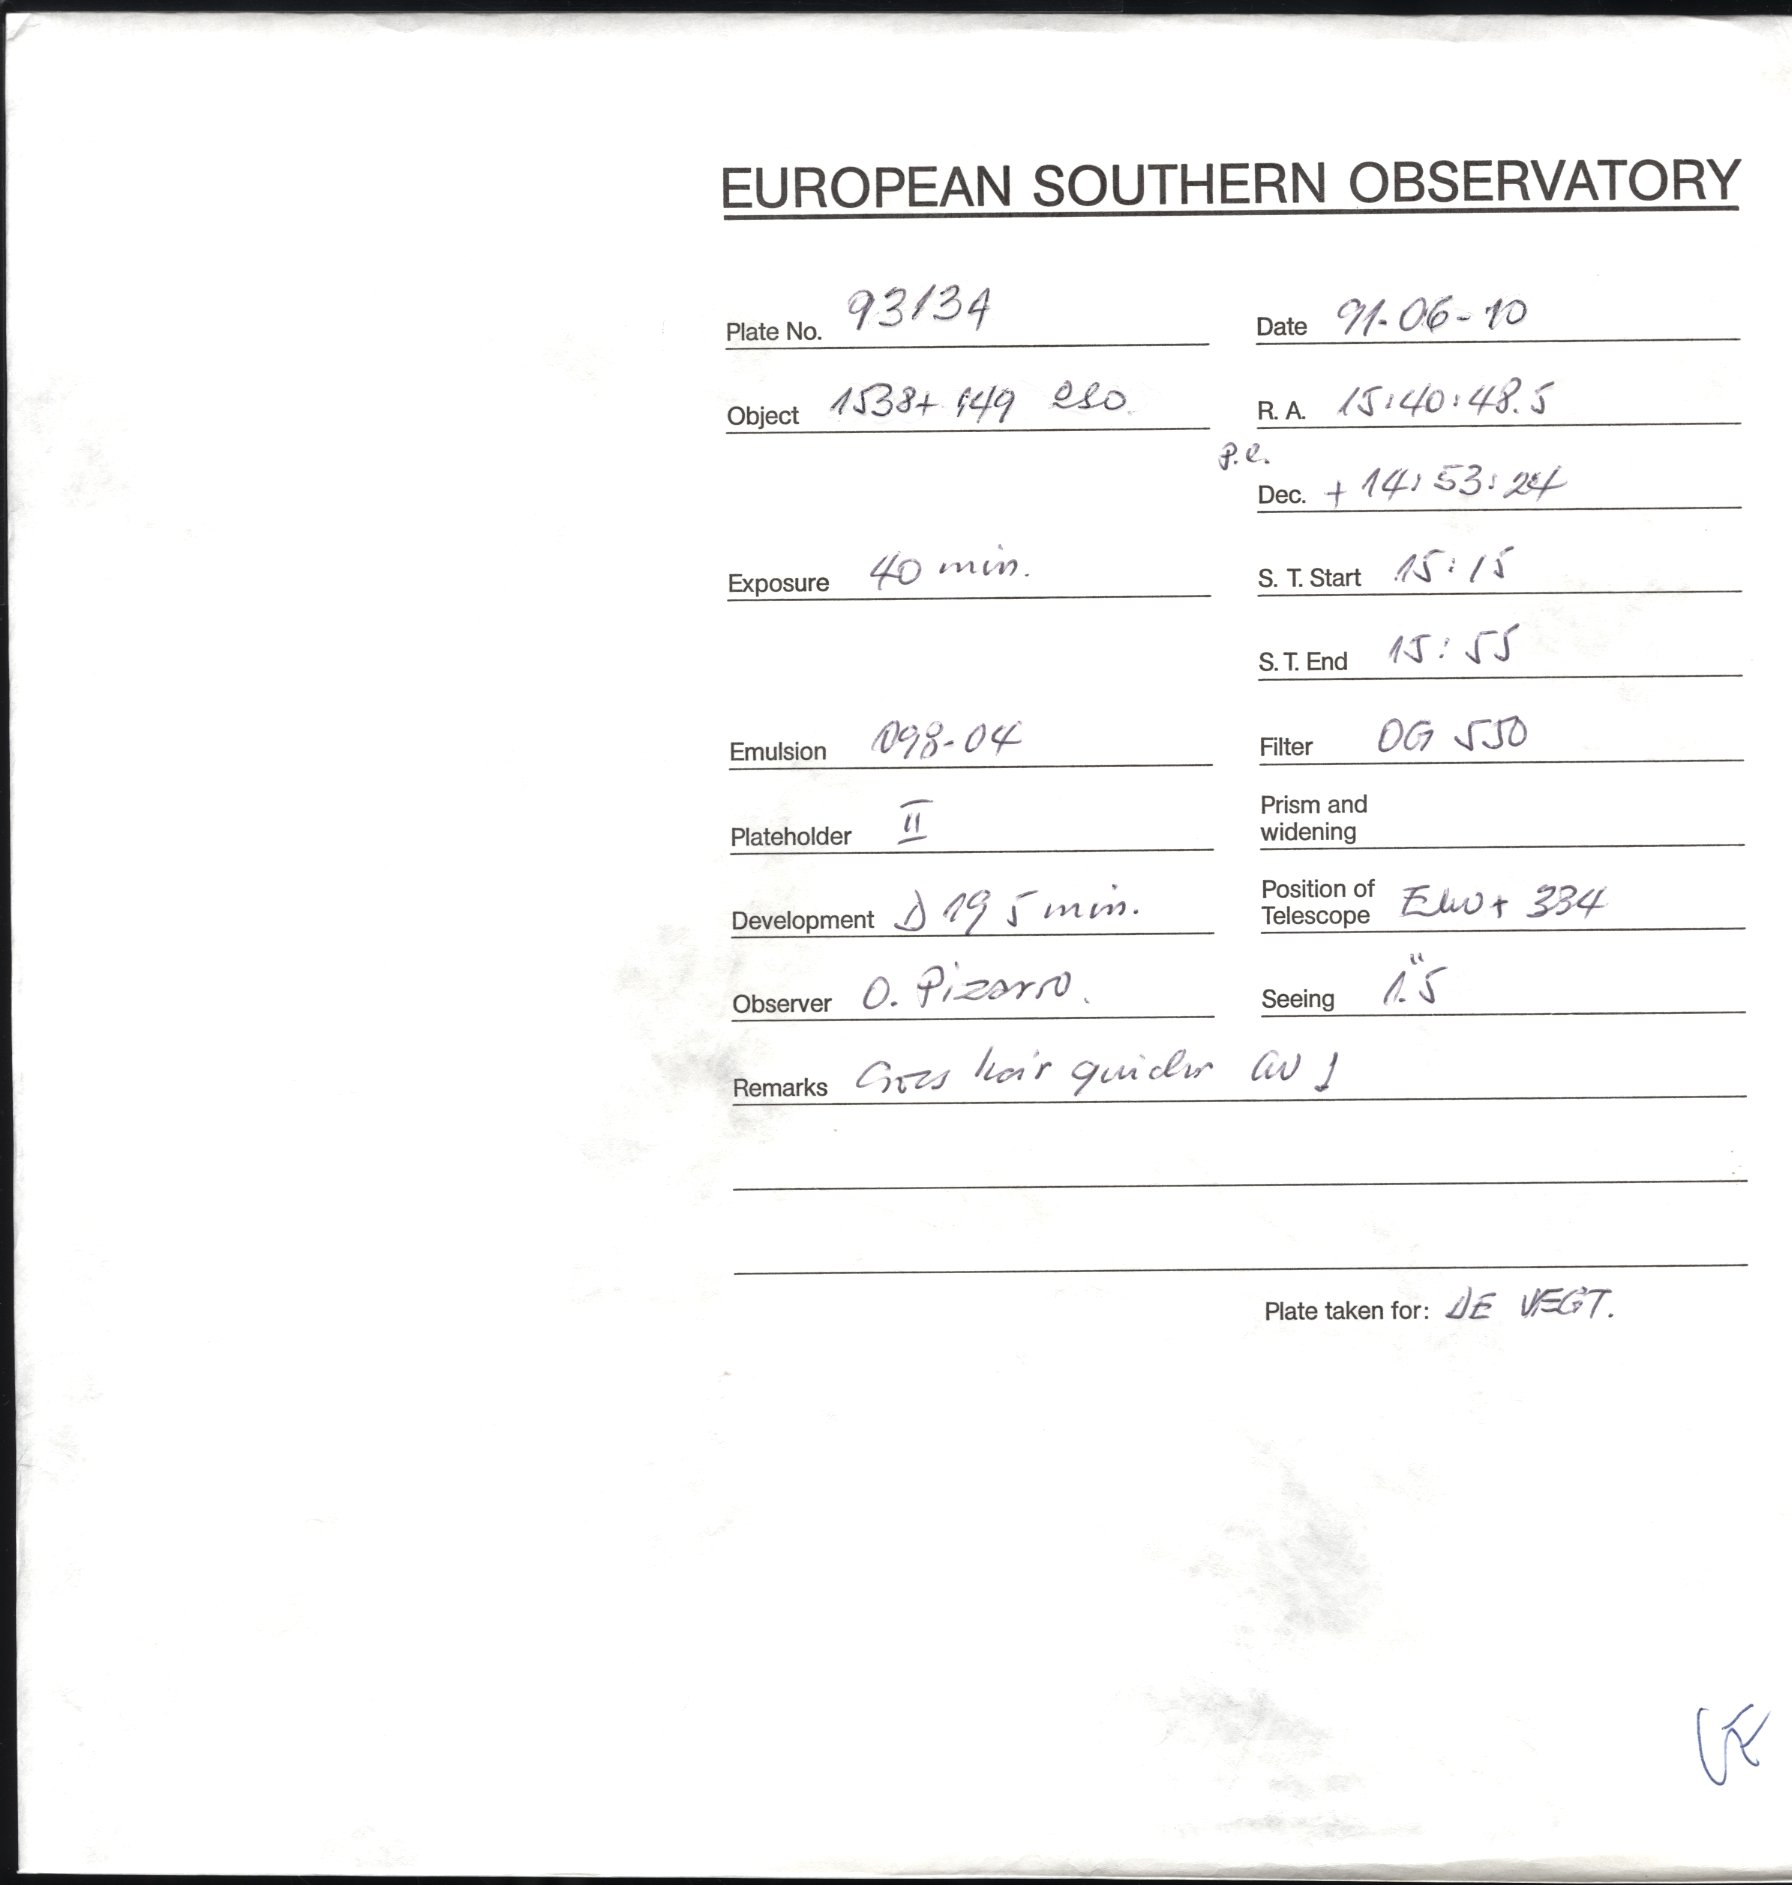 EUROPEAN SOUTHERN OBSERVATORY
Plate No. 93134 Date 91-06-10
Object 1538+149 R. A. 15:40:48.5
P.e.
Dec. + 14:53:24
Exposure 40 min. S. T. Start 15:15
S. T. End 15:55
Emulsion 098-04 Filter OG 550
Plateholder II Prism and
widening
Development D 19 5 min. Position of
Telescope 334
Observer O. Pizarro. Seeing 1."5
Remarks hair guider
Plate taken for: DE VEGT.